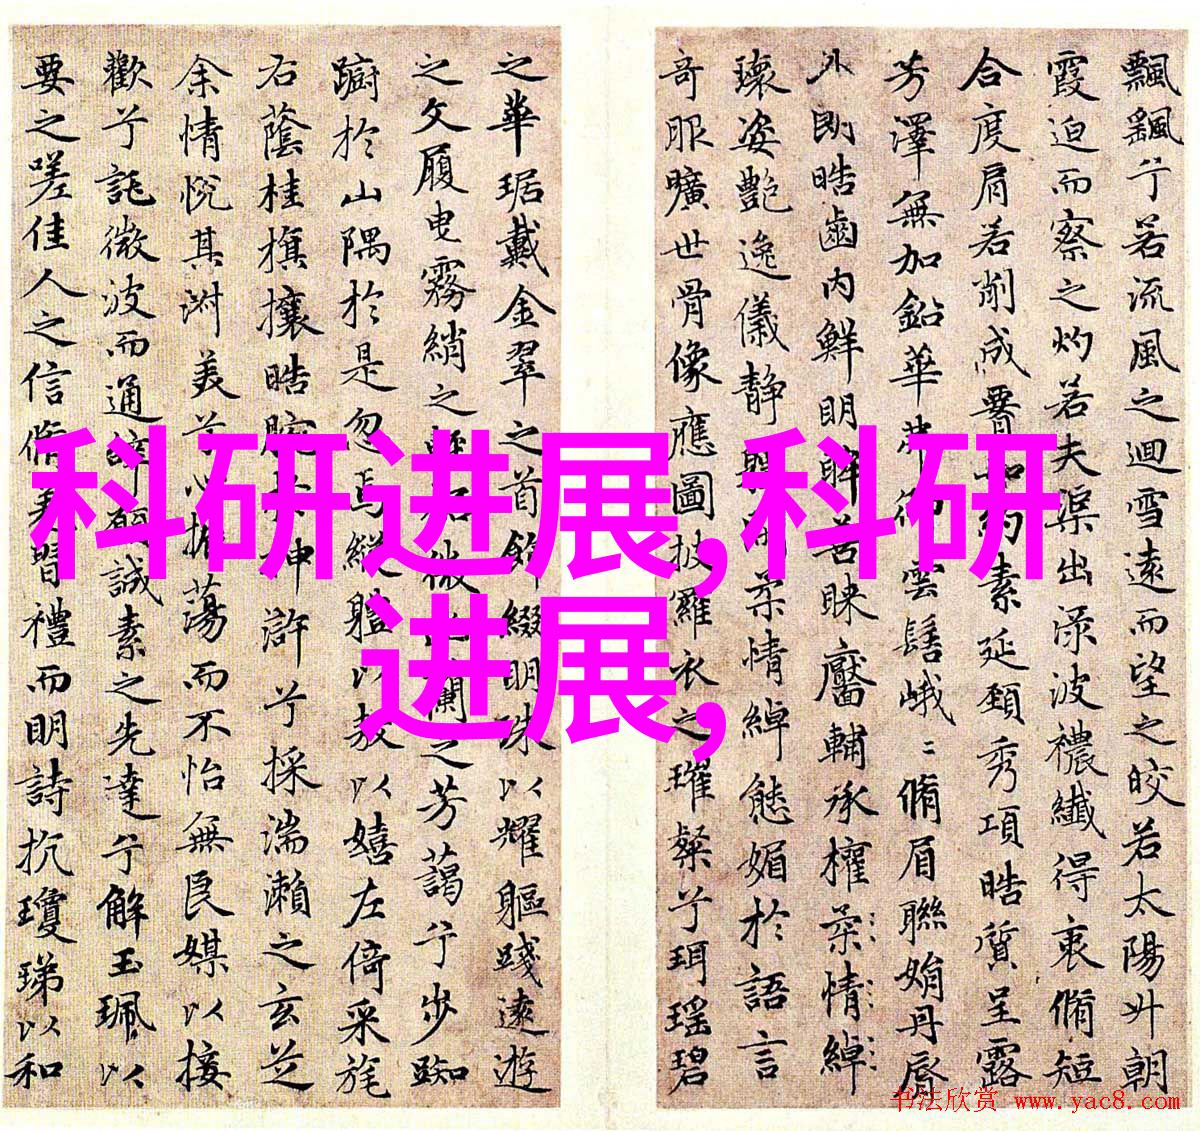 飄飖兮若流風之迴雪遠而望之皎若太陽升朝
霞迫而察之灼若夫渠出淥波襛纖得衷脩短
合度肩若削成䙅如約素延頸秀項皓質呈露
芳澤無加鉛華弗御雲髻峨〻脩眉聯娟丹脣
外朗皓齒内鮮明眸善睞靨輔承權柔情綽
瓌姿艷逸儀静體閑柔情綽態媚於語言
奇服曠世骨像應圖披羅衣之璀粲兮珥瑶碧
之華琚戴金翠之首飾綴明珠以耀軀踐遠遊
之文履曳霧綃之輕裾微幽蘭之芳藹兮步踟
蹰於山隅於是忽焉縱軆以遨以嬉左倚采旄
右蔭桂旗攘皓腕於神滸兮採湍瀨之玄芝
余情悅其淑美兮心振蕩而不怡無良媒以接
歡兮託微波而通辭願誠素之先達兮解玉珮以
要之嗟佳人之信脩羌習禮而明詩抗瓊珶以和
科研进展,科研
进展,
书法欣赏 www.yac8.com